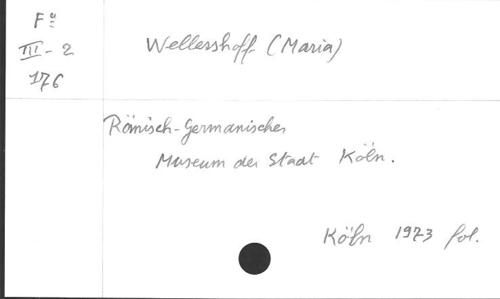 Fᵃ
III-2
176
Wellesshoff (Maria)
Römisch-Germanisches
Museum der Stadt Köln.
Köln 1973 fol.